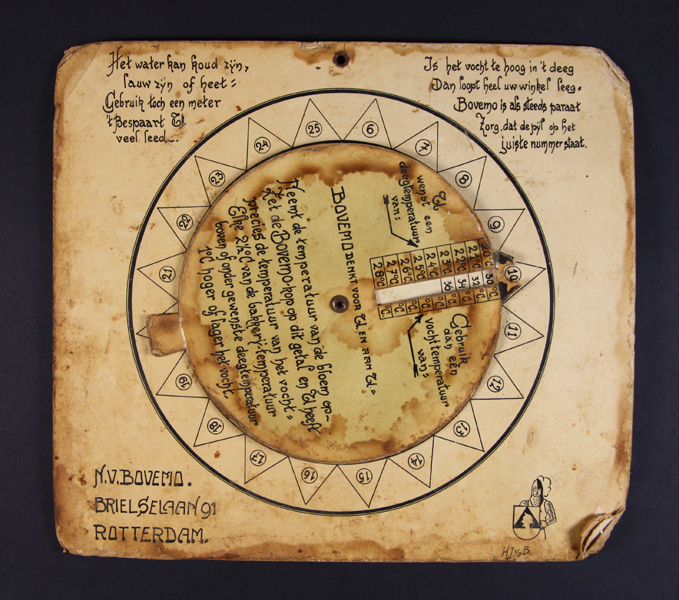 Het water kan koud zÿn,
lauw zÿn of heet:
Gebruik toch een meter
't Bespaart U
veel leed.
Is het vocht te hoog in 't deeg
Dan loopt heel uw winkel leeg.
Bovemo is als steeds paraat
Zorg, dat de pÿl op het
juiste nummer staat.
25
6
7
8
9
10
11
12
13
14
15
16
17
18
19
21
22
23
24
U
wenst een
deegtemperatuur
van:
BOVEMO DENKT VOOR U EN AAN U=
Neemt de temperatuur van de bloem op-
Zet de Bovemo-knop op dit getal en U heeft
precies de temperatuur van het vocht=
Elke 2½°C van de bakkerÿ-temperatuur
boven of onder gewenste deegtemperatuur
1°C hoger of lager het vocht.
28°C
27°C
26°C
25°C
24°C
23°C
22°C
21°C
30
31
32
Gebruik
dan een
vochttemperatuur
van:
N.V. BOVEMO.
BRIELSELAAN 91
ROTTERDAM.